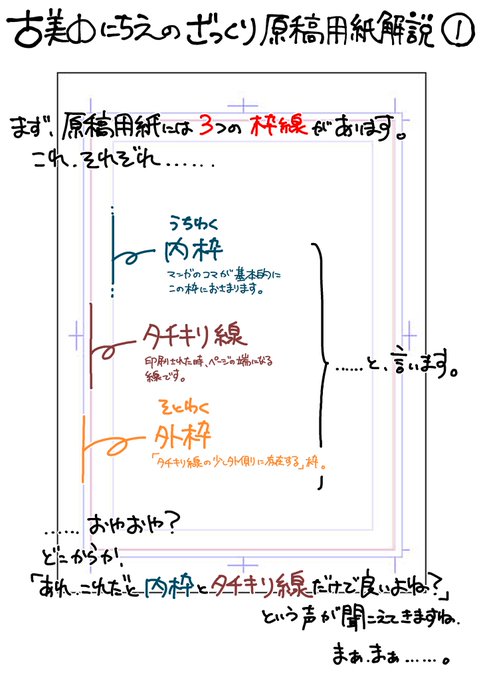 古美山にちえのざっくり原稿用紙解説①
まず、原稿用紙には3つの枠線があります。
これ、それぞれ……
うちわく
内枠
マンガのコマが基本的に
この枠におさまります。
タチキリ線
印刷された時、ページの端になる
線です。
……と、言います。
そとわく
外枠
「タチキリ線の少し外側に存在する」枠。
……おやおや?
どこからか、
「あれ、これだと内枠とタチキリ線だけで良いよね?」
という声が聞こえてきますね。
まぁ、まぁ……。